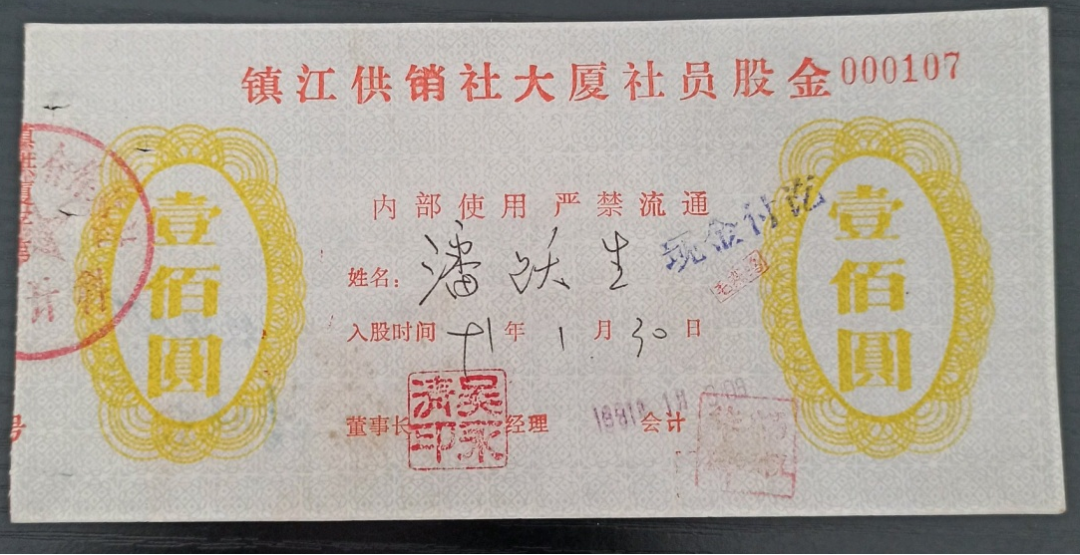 镇江供销社大厦社员股金000107
内部使用 严禁流通
现金付讫
壹佰圆
壹佰圆
姓名：潘跃生
入股时间 91年1月30日
董事长 经理 会计
吴永清印
号